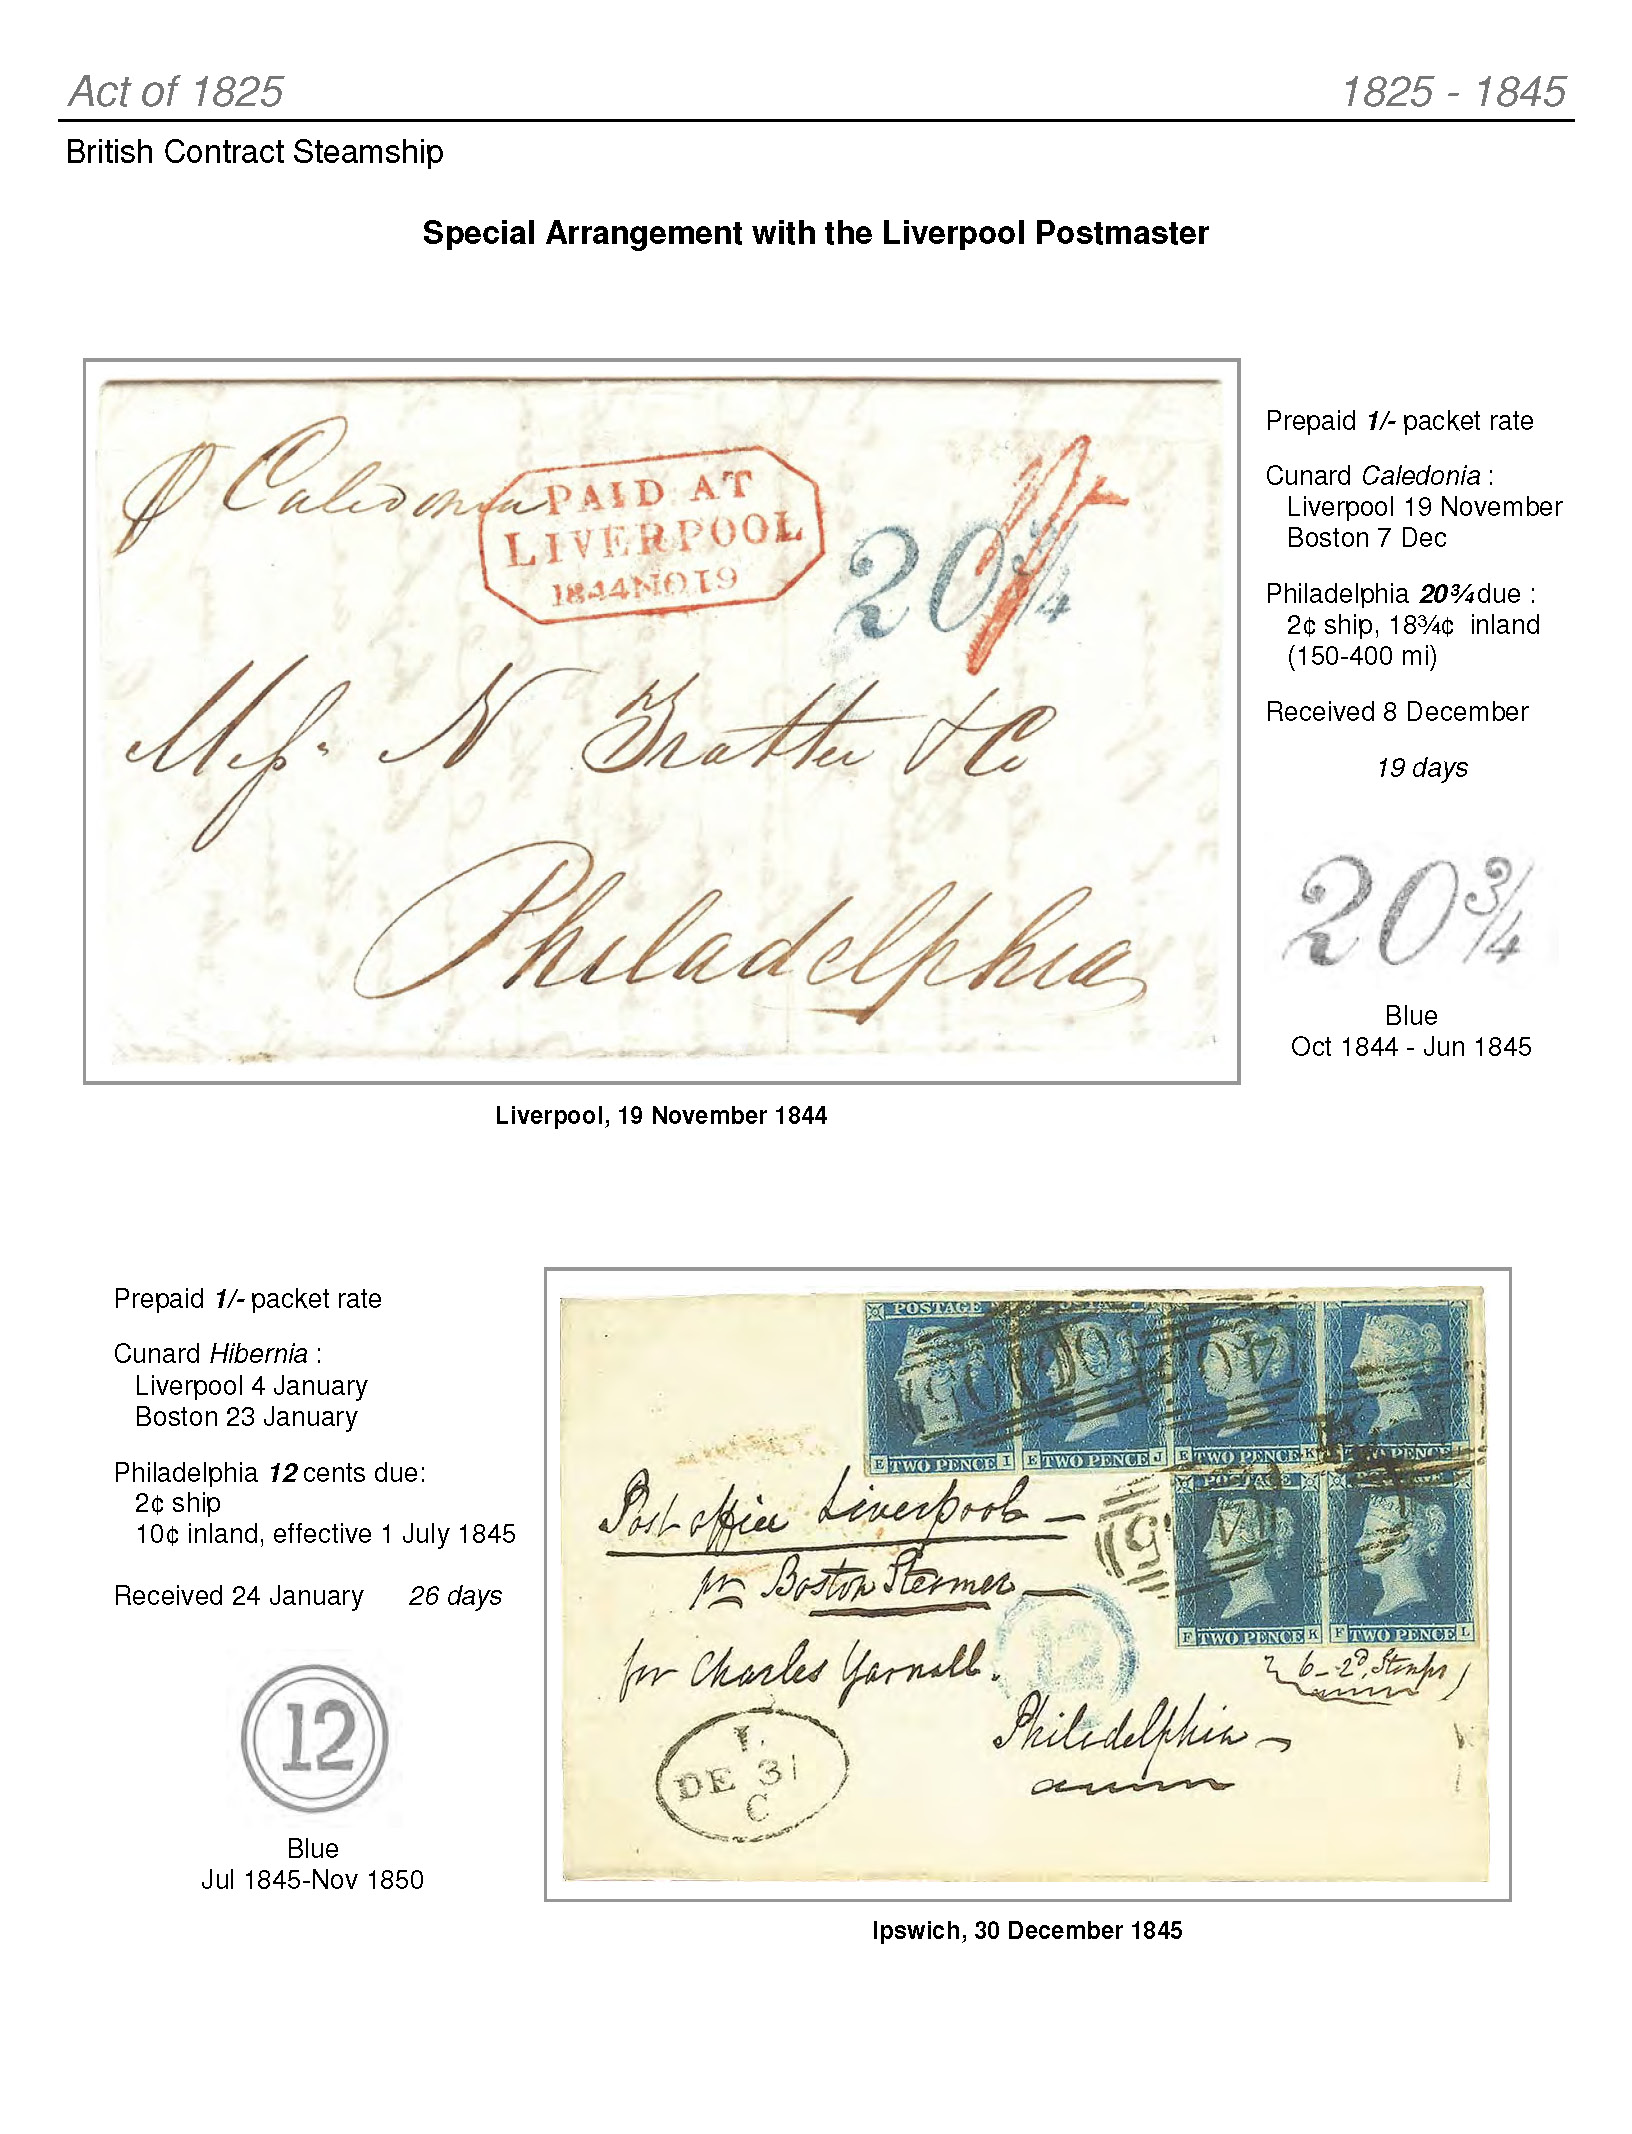 Act of 1825
1825 - 1845
British Contract Steamship
Special Arrangement with the Liverpool Postmaster
p Caledonia
PAID AT
LIVERPOOL
1844NO19
20¾
1/-
Mess. N Trotter & Co
Philadelphia
Liverpool, 19 November 1844
Prepaid 1/- packet rate
Cunard Caledonia :
Liverpool 19 November
Boston 7 Dec
Philadelphia 20¾ due :
2¢ ship, 18¾¢ inland
(150-400 mi)
Received 8 December
19 days
20¾
Blue
Oct 1844 - Jun 1845
Prepaid 1/- packet rate
Cunard Hibernia :
Liverpool 4 January
Boston 23 January
Philadelphia 12 cents due:
2¢ ship
10¢ inland, effective 1 July 1845
Received 24 January 26 days
12
Blue
Jul 1845-Nov 1850
POSTAGE
E TWO PENCE I E TWO PENCE J E TWO PENCE K
POSTAGE
F TWO PENCE K F TWO PENCE L
Post office Liverpool
pr Boston Steamer
for Charles Yarnall.
12
6-2d. Stamps
Philadelphia
I.
DE 31
C
Ipswich, 30 December 1845